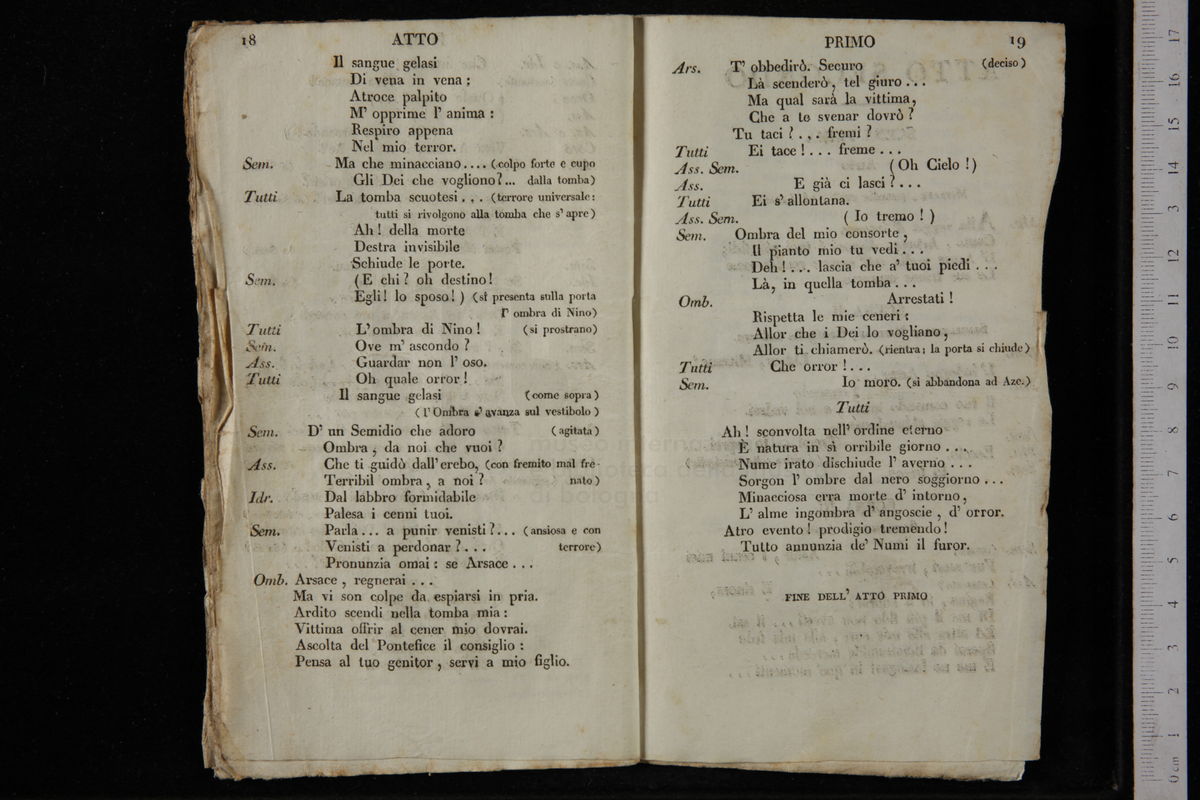 18 ATTO
Il sangue gelasi
Di vena in vena ;
Atroce palpito
M' opprime l' anima :
Respiro appena
Nel mio terror.
Sem. Ma che minacciano.... (colpo forte e cupo
Gli Dei che vogliono?... dalla tomba)
Tutti La tomba scuotesi... (terrore universale:
tutti si rivolgono alla tomba che s' apre)
Ah! della morte
Destra invisibile
Schiude le porte.
Sem. (E chi? oh destino!
Egli! lo sposo!) (si presenta sulla porta
l' ombra di Nino)
Tutti L' ombra di Nino! (si prostrano)
Sem. Ove m' ascondo?
Ass. Guardar non l' oso.
Tutti Oh quale orror!
Il sangue gelasi (come sopra)
(l' Ombra s' avanza sul vestibolo)
Sem. D' un Semidio che adoro (agitata)
Ombra, da noi che vuoi?
Ass. Che ti guidò dall' erebo, (con fremito mal fre-
Terribil ombra, a noi? nato)
Idr. Dal labbro formidabile
Palesa i cenni tuoi.
Sem. Parla... a punir venisti?... (ansiosa e con
Venisti a perdonar?... terrore)
Pronunzia omai: se Arsace...
Omb. Arsace, regnerai...
Ma vi son colpe da espiarsi in pria.
Ardito scendi nella tomba mia:
Vittima offrir al cener mio dovrai.
Ascolta del Pontefice il consiglio:
Pensa al tuo genitor, servi a mio figlio.
PRIMO 19
Ars. T' obbedirò. Securo (deciso)
Là scenderò, tel giuro...
Ma qual sarà la vittima,
Che a te svenar dovrò?
Tu taci?... fremi?
Tutti Ei tace!... freme...
Ass. Sem. (Oh Cielo!)
Ass. E già ci lasci?...
Tutti Ei s' allontana.
Ass. Sem. (Io tremo!)
Sem. Ombra del mio consorte,
Il pianto mio tu vedi...
Deh!... lascia che a' tuoi piedi...
Là, in quella tomba...
Omb. Arrestati!
Rispetta le mie ceneri:
Allor che i Dei lo vogliano,
Allor ti chiamerò. (rientra; la porta si chiude)
Tutti Che orror!...
Sem. Io moro. (si abbandona ad Aze.)
Tutti
Ah! sconvolta nell' ordine eterno
È natura in sì orribile giorno...
Nume irato dischiude l' averno...
Sorgon l' ombre dal nero soggiorno...
Minacciosa erra morte d' intorno,
L' alme ingombra d' angoscie, d' orror.
Atro evento! prodigio tremendo!
Tutto annunzia de' Numi il furor.
FINE DELL' ATTO PRIMO
0 cm 1 2 3 4 5 6 7 8 9 10 11 12 13 14 15 16 17